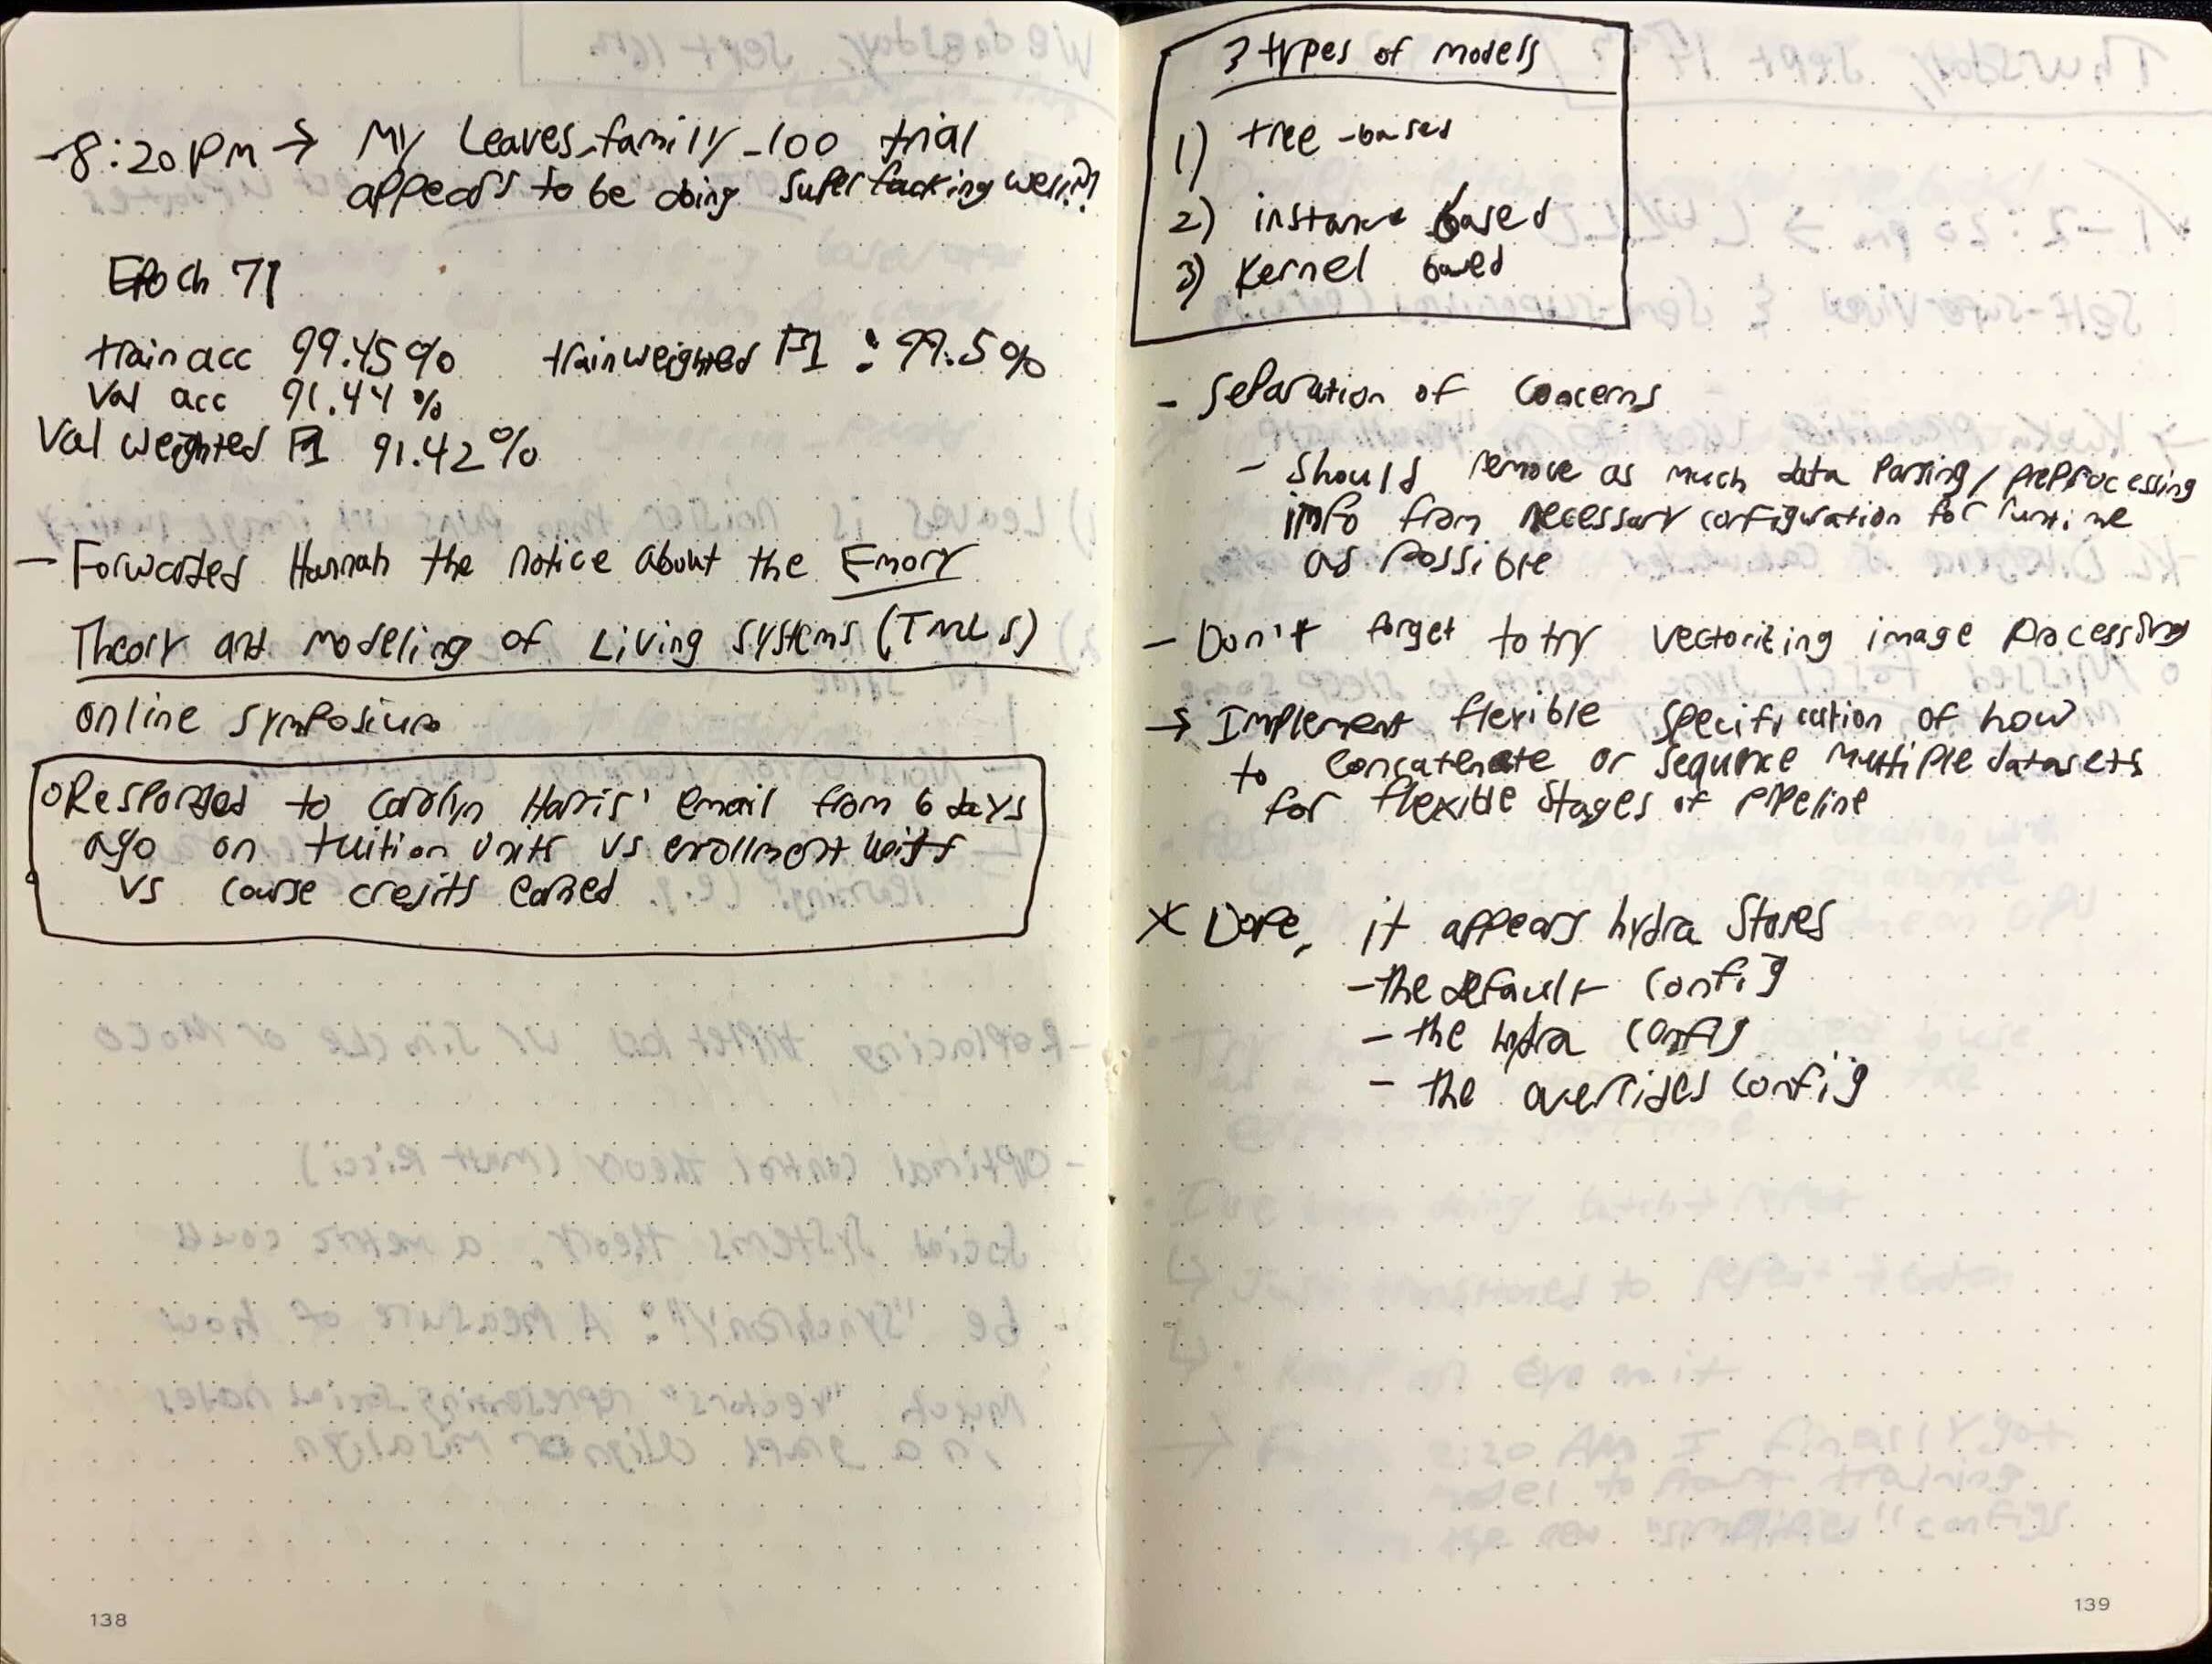 -8:20 PM → My Leaves_family_100 trial
appears to be doing super fucking well?!
Epoch 71
train acc 99.45% train weighted F1 : 99.5%
Val acc 91.44%
Val weighted F1 91.42%
- Forwarded Hannah the notice about the Emory
Theory and Modeling of Living Systems (TMLS)
online symposium
o Responded to Carolyn Harris' email from 6 days
ago on tuition units vs enrollment units
vs course credits earned
138
3 types of models
1) tree-based
2) instance based
3) Kernel based
- Separation of Concerns
- Should remove as much data parsing/preprocessing
info from necessary configuration for runtime
as possible
- Don't forget to try vectorizing image processing
→ Implement flexible specification of how
to concatenate or sequence multiple datasets
for flexible stages of pipeline
X Dope, it appears hydra stores
- the default config
- the hydra config
- the overrides config
139